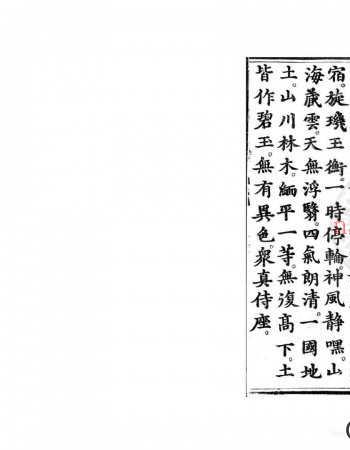 宿。旋璣玉衡。一時停輪。神風靜嘿。山
海藏雲。天無浮翳。四氣朗清。一國地
土。山川林木。緬平一等。無復高下。土
皆作碧玉。無有異色。衆真侍座。